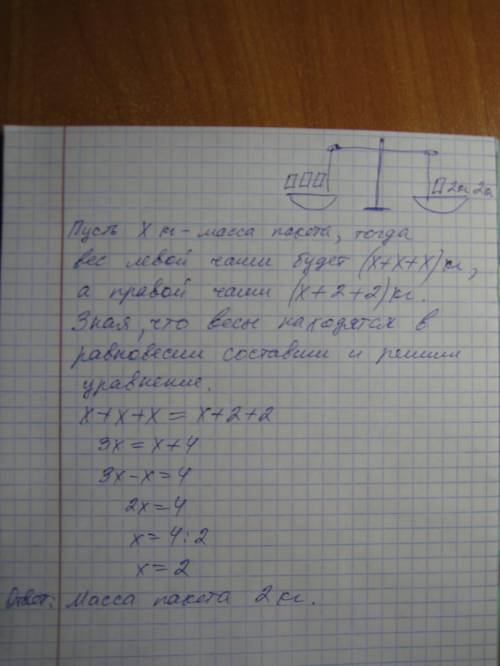 2кг 2кг
Пусть х кг - масса пакета, тогда
вес левой чаши будет (х+х+х)кг,
а правой чаши (х+2+2)кг.
Зная, что весы находятся в
равновесии составим и решим
уравнение.
х+х+х = х+2+2
3х = х+4
3х-х=4
2х=4
х=4:2
х=2
Ответ: Масса пакета 2 кг.